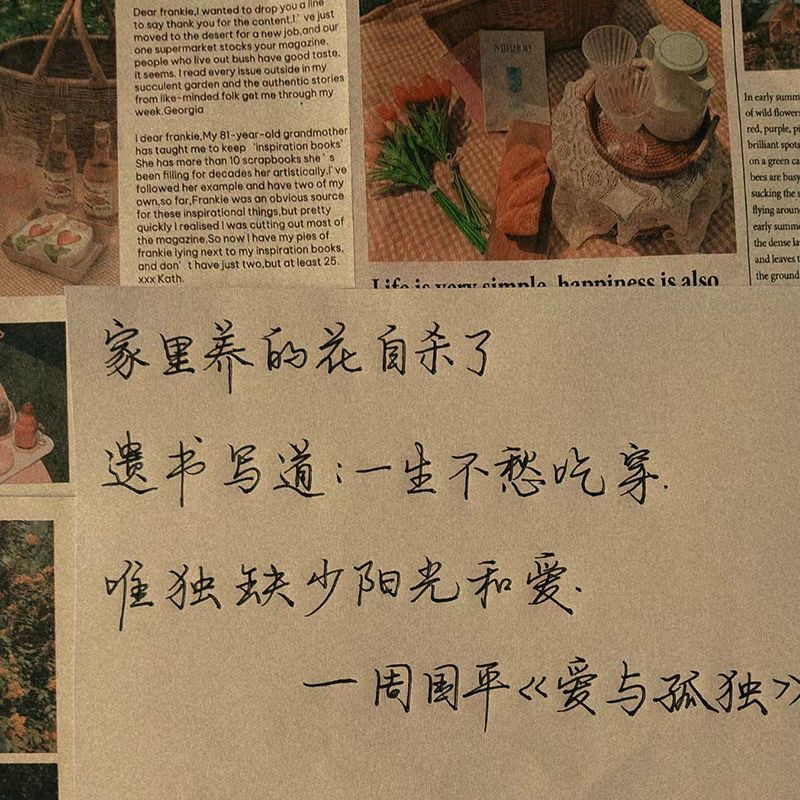 Dear frankie,I wanted to drop you a line
to say thank you for the content.I've just
moved to the desert for a new job,and our
one supermarket stocks your magazine.
people who live out bush have good taste,
it seems. I read every issue outside in my
succulent garden and the authentic stories
from like-minded folk get me through my
week.Georgia
I dear frankie,My 81-year-old grandmother
has taught me to keep 'inspiration books'
She has more than 10 scrapbooks she's
been filling for decades her artistically.I've
followed her example and have two of my
own,so far,Frankie was an obvious source
for these inspirational things,but pretty
quickly I realised I was cutting out most of
the magazine.So now I have my pies of
frankie lying next to my inspiration books,
and don't have just two,but at least 25.
xxx Kath.
MIRROR
Life is very simple, happiness is also
In early summ
of wild flower
red, purple, pi
brilliant spots
on a green ca
bees are busy
sucking the s
flying aroun
early summe
the dense la
and leaves t
the ground
家里养的花自杀了
遗书写道:一生不愁吃穿.
唯独缺少阳光和爱.
一周国平《爱与孤独》